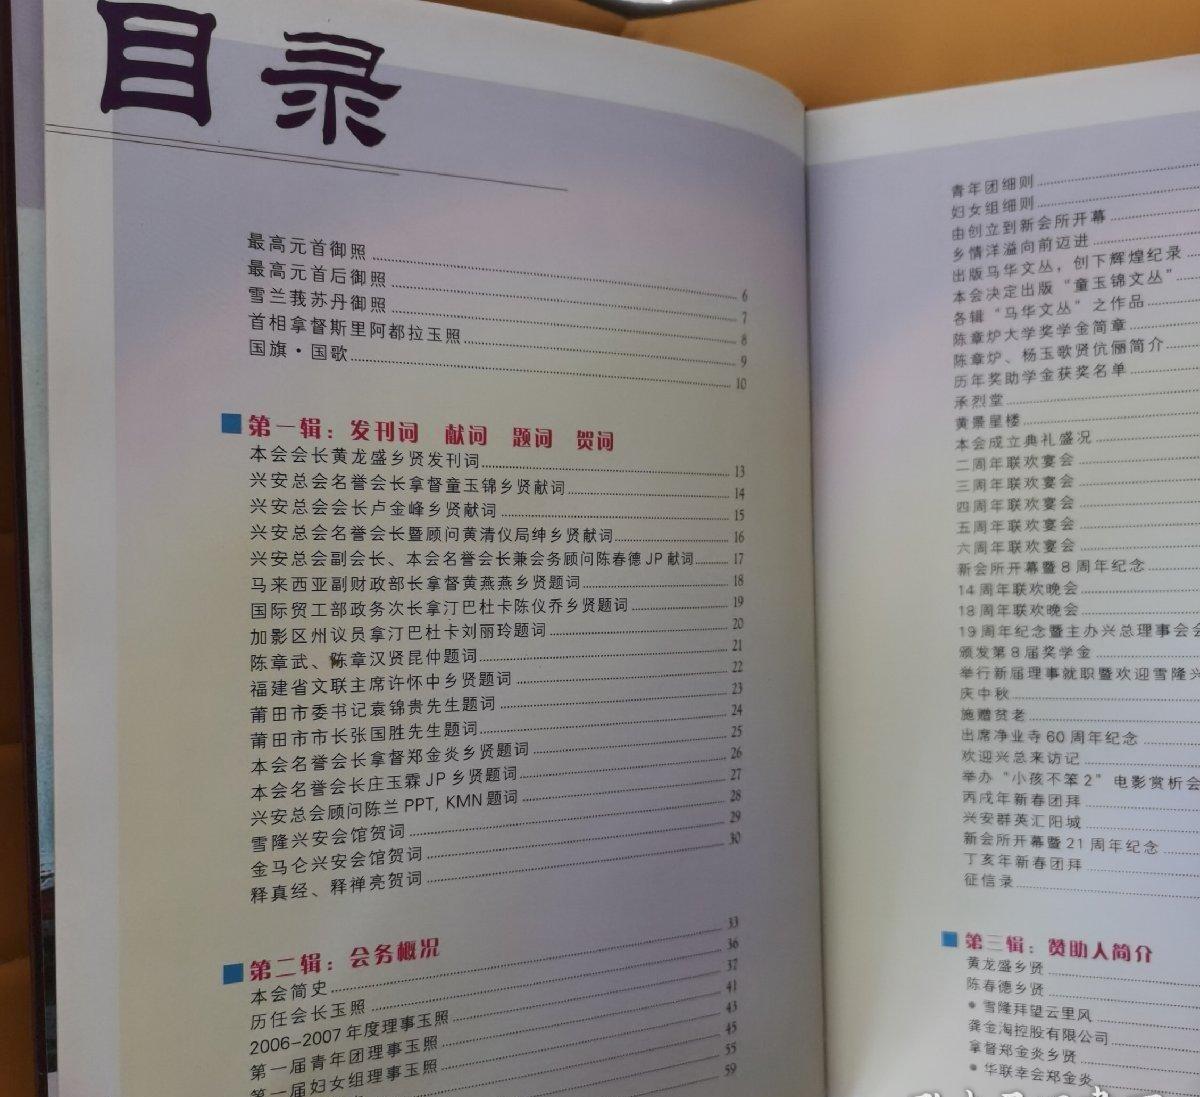 目录
最高元首御照 6
最高元首后御照 7
雪兰莪苏丹御照 8
首相拿督斯里阿都拉玉照 9
国旗·国歌 10
第一辑：发刊词 献词 题词 贺词
本会会长黄龙盛乡贤发刊词 13
兴安总会名誉会长拿督童玉锦乡贤献词 14
兴安总会会长卢金峰乡贤献词 15
兴安总会名誉会长暨顾问黄清仪局绅乡贤献词 16
兴安总会副会长、本会名誉会长兼会务顾问陈春德JP献词 17
马来西亚副财政部长拿督黄燕燕乡贤题词 18
国际贸工部政务次长拿汀巴杜卡陈仪乔乡贤题词 19
加影区州议员拿汀巴杜卡刘丽玲题词 20
陈章武、陈章汉贤昆仲题词 21
福建省文联主席许怀中乡贤题词 22
莆田市委书记袁锦贵先生题词 23
莆田市市长张国胜先生题词 24
本会名誉会长拿督郑金炎乡贤题词 25
本会名誉会长庄玉霖JP乡贤题词 26
兴安总会顾问陈兰PPT, KMN题词 27
雪隆兴安会馆贺词 28
金马仑兴安会馆贺词 29
释真经、释禅亮贺词 30
第二辑：会务概况
本会简史 33
历任会长玉照 36
2006-2007年度理事玉照 37
第一届青年团理事玉照 41
第一届妇女组理事玉照 43
45
55
59
青年团细则
妇女组细则
由创立到新会所开幕
乡情洋溢向前迈进
出版马华文丛，创下辉煌纪录
本会决定出版“童玉锦文丛”
各辑“马华文丛”之作品
陈章炉大学奖学金简章
陈章炉、杨玉歌贤伉俪简介
历年奖助学金获奖名单
承烈堂
黄景星楼
本会成立典礼盛况
二周年联欢宴会
三周年联欢宴会
四周年联欢宴会
五周年联欢宴会
六周年联欢宴会
新会所开幕暨8周年纪念
14周年联欢晚会
18周年联欢晚会
19周年纪念暨主办兴总理事会
颁发第8届奖学金
举行新届理事就职暨欢迎雪隆兴
庆中秋
施赠贫老
出席净业寺60周年纪念
欢迎兴总来访记
举办“小孩不笨2”电影赏析会
丙戌年新春团拜
兴安群英汇阳城
新会所开幕暨21周年纪念
丁亥年新春团拜
征信录
第三辑：赞助人简介
黄龙盛乡贤
陈春德乡贤
• 雪隆拜望云里风
龚金淘控股有限公司
拿督郑金炎乡贤
• 华联幸会郑金炎